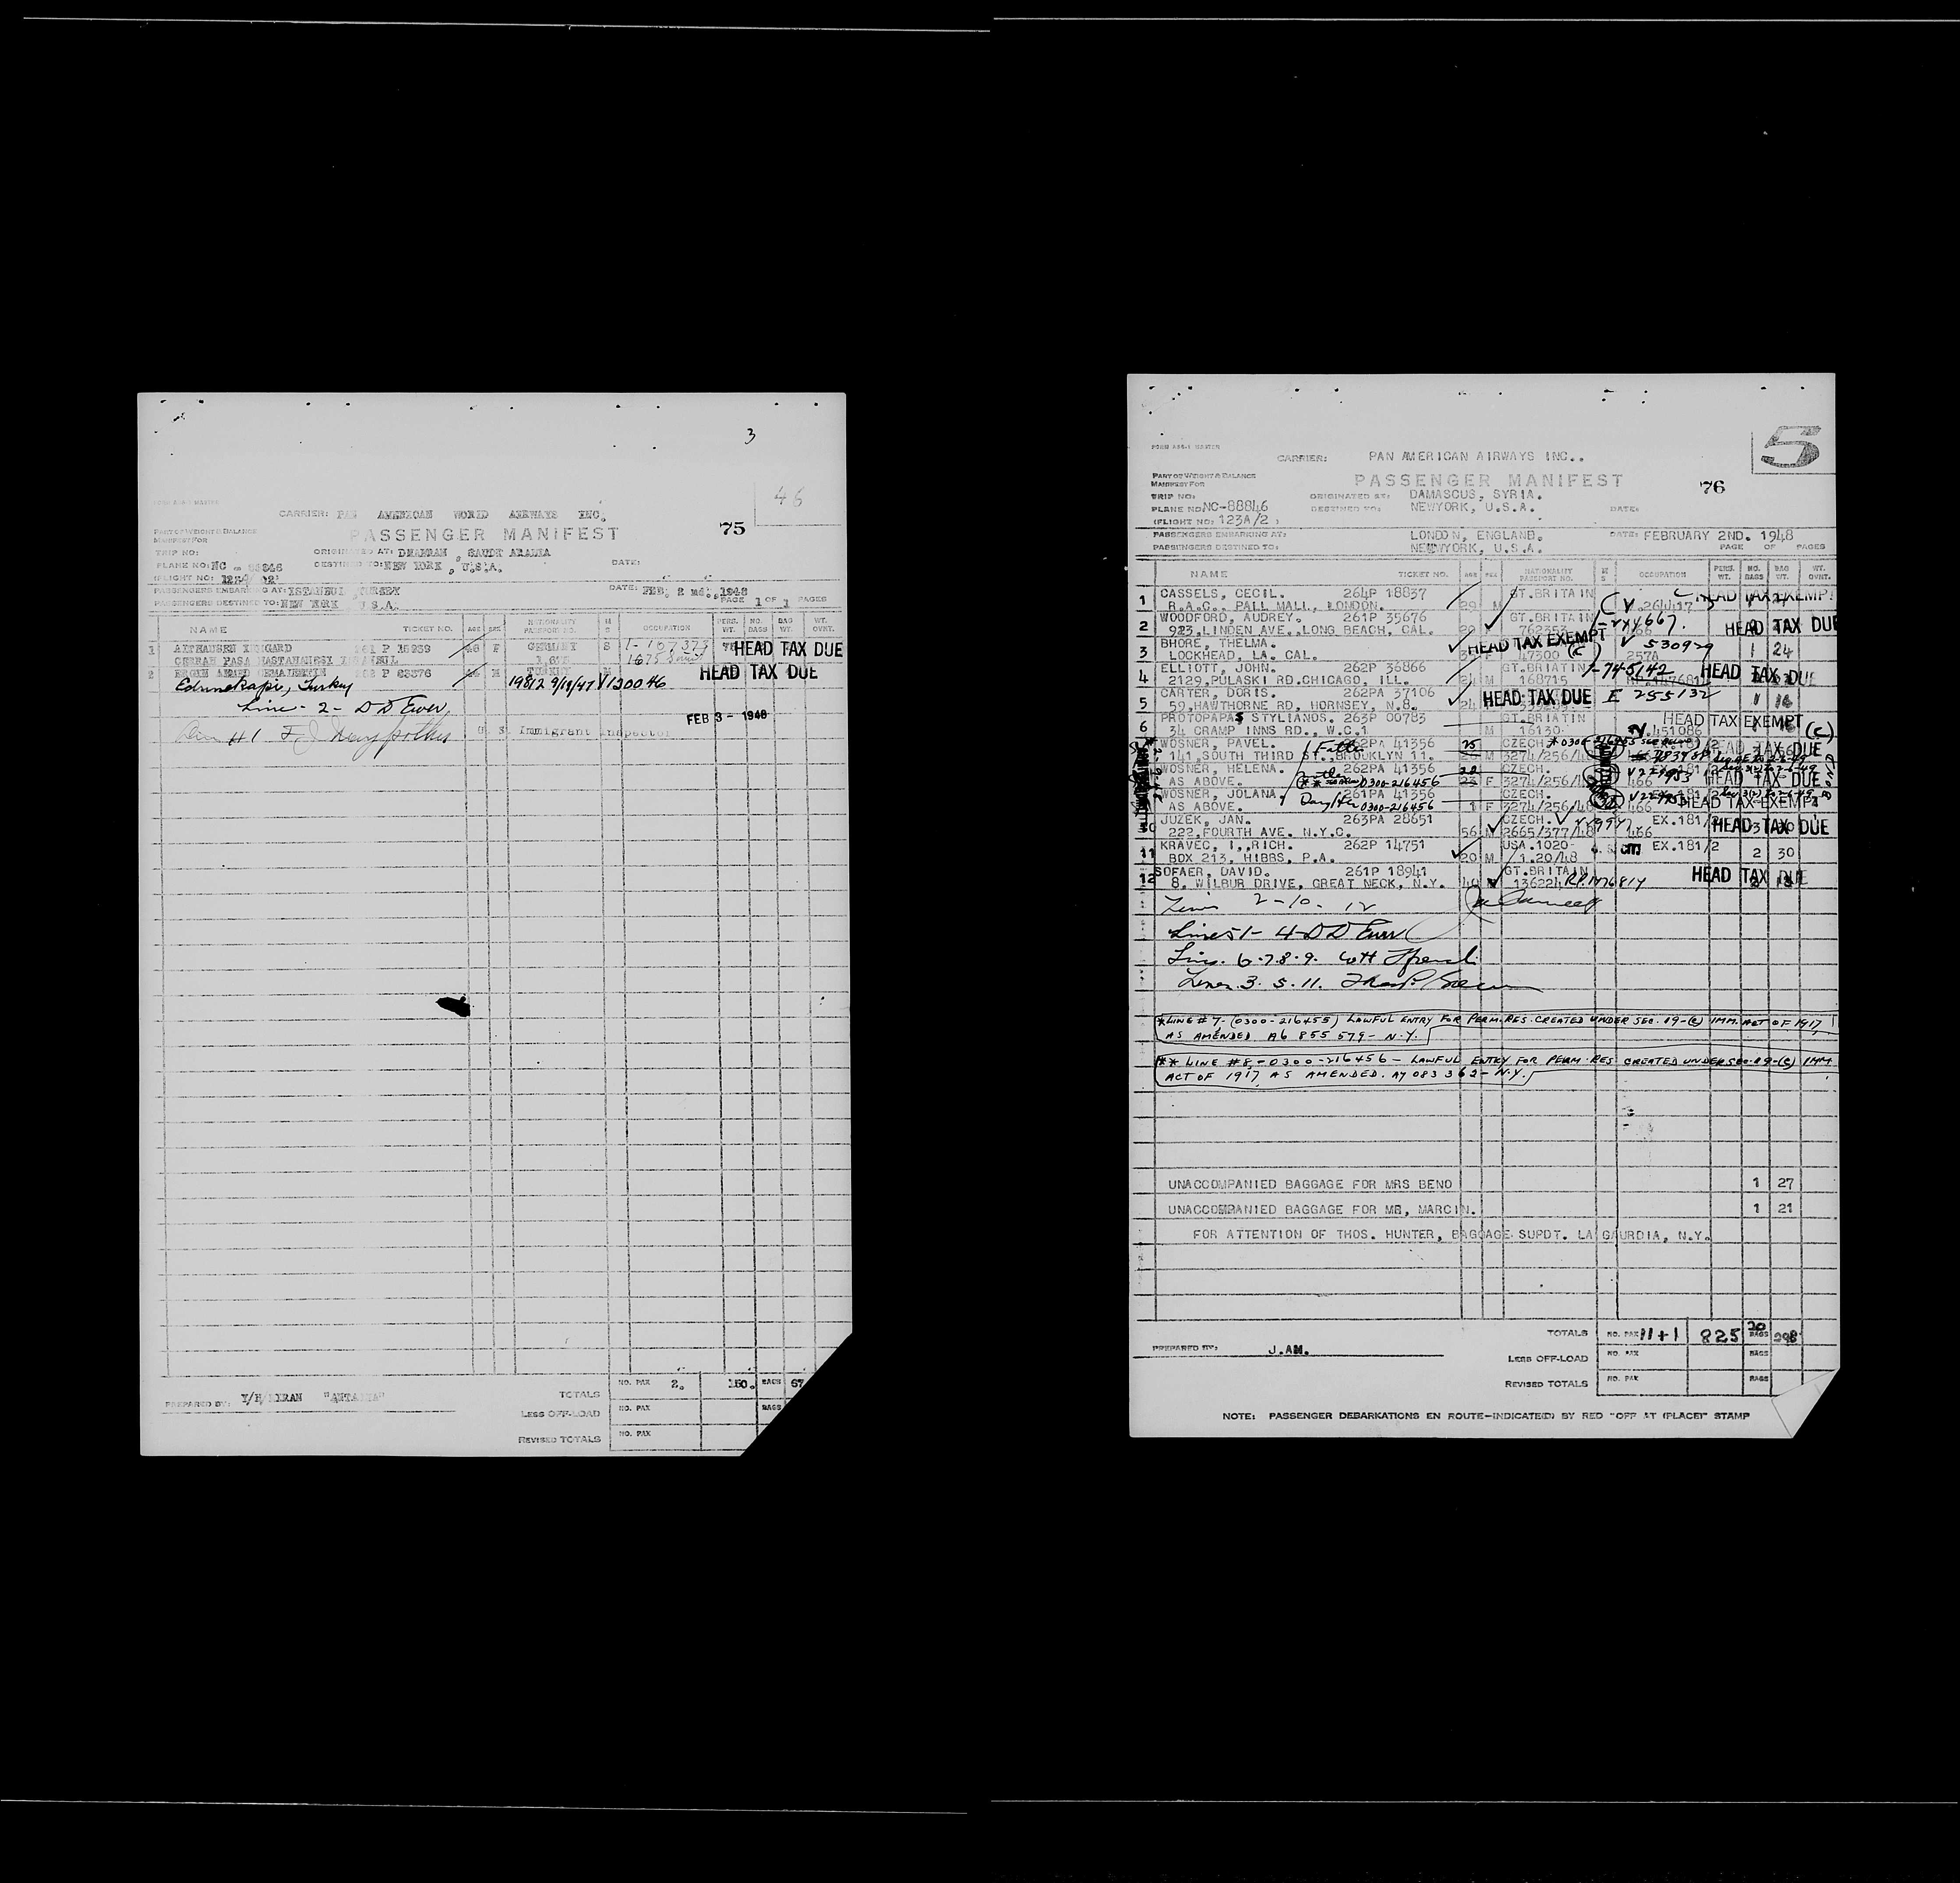 3
46
CARRIER: PAN AMERICAN WORLD AIRWAYS INC.
PART OF WEIGHT & BALANCE
MANIFEST FOR
PASSENGER MANIFEST
75
TRIP NO:
ORIGINATED AT: DHAHRAN, SAUDI ARABIA
PLANE NO: NC - 88846
DESTINED TO: NEW YORK, U.S.A.
DATE:
(FLIGHT NO:
PASSENGERS EMBARKING AT: ISTANBUL TURKEY
DATE: FEB. 2 nd., 1948
PASSENGERS DESTINED TO: NEW YORK U.S.A.
PAGE 1 OF 1 PAGES
NAME TICKET NO. AGE SEX NATIONALITY PASSPORT NO. M S OCCUPATION PERS. WT. NO. BAGS BAG WT. WT. OVNT.
1 F GERMANY S HEAD TAX DUE
2 M TURKEY HEAD TAX DUE
Edirnekapi, Turkey 19812 9/19/47 V120046
Line - 2 - D D Ewer
FEB 3 - 1948
U. S. Immigrant Inspector
TOTALS NO. PAX 2. 150. BAGS 67
PREPARED BY:
LESS OFF-LOAD NO. PAX BAGS
REVISED TOTALS NO. PAX
5
CARRIER: PAN AMERICAN AIRWAYS INC..
PART OF WEIGHT & BALANCE
MANIFEST FOR
PASSENGER MANIFEST
76
TRIP NO:
ORIGINATED AT: DAMASCUS, SYRIA.
PLANE NO: NC-88846
DESTINED TO: NEWYORK, U.S.A.
DATE:
(FLIGHT NO: 123A/2 )
PASSENGERS EMBARKING AT: LONDON, ENGLAND.
DATE: FEBRUARY 2ND. 1948
PASSENGERS DESTINED TO: NEWYORK, U.S.A.
PAGE OF PAGES
NAME TICKET NO. AGE SEX NATIONALITY PASSPORT NO. M S OCCUPATION PERS. WT. NO. BAGS BAG WT. WT. OVNT.
1 CASSELS, CECIL. 264P 18837 GT.BRITAIN HEAD TAX EXEMPT
R.A.C., PALL MALL, LONDON. 29 M
2 WOODFORD, AUDREY. 261P 35676 GT.BRITAIN
923,LINDEN AVE.,LONG BEACH, CAL. HEAD TAX DUE
3 BHORE, THELMA. HEAD TAX EXEMPT (C) V 530929
LOCKHEAD, LA. CAL. F 47300 257A 1 24
4 ELLIOTT, JOHN. 262P 36866 GT.BRIATIN I-745142 HEAD TAX DUE
2129,PULASKI RD.CHICAGO, ILL. 24 M 168715
5 CARTER, DORIS. 262PA 37106 HEAD TAX DUE E 255132
59,HAWTHORNE RD, HORNSEY, N.8. 24 1 16
6 PROTOPAPAS STYLIANOS. 263P 00783 GT.BRIATIN HEAD TAX EXEMPT (C)
34 CRAMP INNS RD., W.C.1 M 16130 V.451086
WOSNER, PAVEL. 262PA 41356 25 CZECH. HEAD TAX DUE
141,SOUTH THIRD ST.,BROOKLYN 11. M 3274/256/48
WOSNER, HELENA. 262PA 41356 CZECH.
AS ABOVE. 0300-216456 F 3274/256/48 466 HEAD TAX DUE
WOSNER, JOLANA. 261PA 41356 CZECH.
AS ABOVE. Daughter 0300-216456 1 F 3274/256/48 466 HEAD TAX EXEMPT
10 JUZEK, JAN. 263PA 28651 CZECH. EX.181/2
222,FOURTH AVE. N.Y.C. 56 M 2665/377/48 466 HEAD TAX DUE
11 KRAVEC, I.,RICH. 262P 14751 USA.1020- EX.181/2
BOX 213, HIBBS, P.A. 20 M 1.20/48 2 30
12 SOFAER, DAVID. 261P 18941 GT.BRITAIN HEAD TAX DUE
8, WILBUR DRIVE, GREAT NECK, N.Y. 40 M 136224
Lines 2-10-12
Lines 1-4-D D Ewer
Lines. 6-7-8-9. WH
Lines 3. 5. 11.
*LINE # 7-(0300-216455) LAWFUL ENTRY FOR PERM. RES. CREATED UNDER SEC. 19-(C) IMM. ACT OF 1917,
AS AMENDED A6 855 579 - N.Y.
** LINE #8,-0300-216456 - LAWFUL ENTRY FOR PERM. RES CREATED UNDER SEC. 19-(C) IMM.
ACT OF 1917 AS AMENDED. A7 083 362 - N.Y.
UNACCOMPANIED BAGGAGE FOR MRS BENO 1 27
UNACCOMPANIED BAGGAGE FOR MR, MARCIN. 1 21
FOR ATTENTION OF THOS. HUNTER, BAGGAGE SUPDT. LA GAURDIA, N.Y.
TOTALS NO. PAX 11+1 825 20 BAGS 298
PREPARED BY: J.AM.
LESS OFF-LOAD NO. PAX BAGS
REVISED TOTALS NO. PAX BAGS
NOTE: PASSENGER DEBARKATIONS EN ROUTE-INDICATE(D) BY RED "OFF AT (PLACE)" STAMP